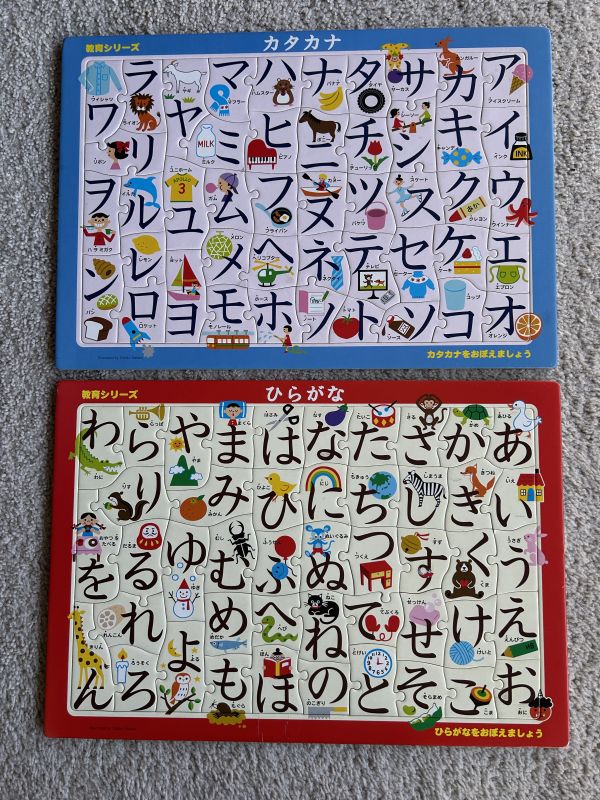 教育シリーズ
カタカナ
ア
アイスクリーム
イ
インク
INK
ウ
ウインナー
エ
エプロン
オ
オレンジ
カ
カンガルー
キ
キャンディ
ク
クレヨン
あか
ケ
ケーキ
コ
コップ
サ
サーカス
シ
シーソー
ス
スケート
セ
セーター
ソ
ソース
タ
タイヤ
チ
チューリップ
ツ
バケツ
テ
テレビ
ト
トマト
ナ
バナナ
ニ
ポニー
ヌ
カヌー
ネ
ネクタイ
ノ
ノート
ハ
ハムスター
ヒ
ピアノ
フ
フライパン
ヘ
ヘリコプター
ホ
ホース
マ
マフラー
ミ
ミルク
MILK
ム
ガム
メ
メロン
モ
モノレール
ヤ
ヤギ
ユ
ユニホーム
APOLLO
3
ヨ
ヨット
ラ
ライオン
リ
リボン
ル
イルカ
レ
レモン
ロ
ロケット
ワ
ワイシャツ
ヲ
ハヲミガク
ン
パン
カタカナをおぼえましょう
教育シリーズ
ひらがな
あ
あひる
い
いえ
う
うさぎ
え
えんぴつ
お
おに
か
かめ
き
きつね
く
くま
け
けいと
こ
こま
さ
さる
し
しまうま
す
すず
せ
せっけん
そ
そらまめ
た
たいこ
ち
ちきゅう
つ
つくえ
て
てぶくろ
と
とけい
な
なす
に
にじ
ぬ
ぬいぐるみ
ね
ねこ
の
のこぎり
は
はさみ
ひ
ひよこ
ふ
ふうせん
へ
へび
ほ
ほん
ま
まくら
み
みかん
む
むし
め
めだか
も
もぐら
や
やま
ゆ
ゆき
よ
よる
ら
らっぱ
り
りす
る
だるま
れ
れんこん
ろ
ろうそく
わ
わに
を
おやつを
たべる
ん
きりん
ひらがなをおぼえましょう